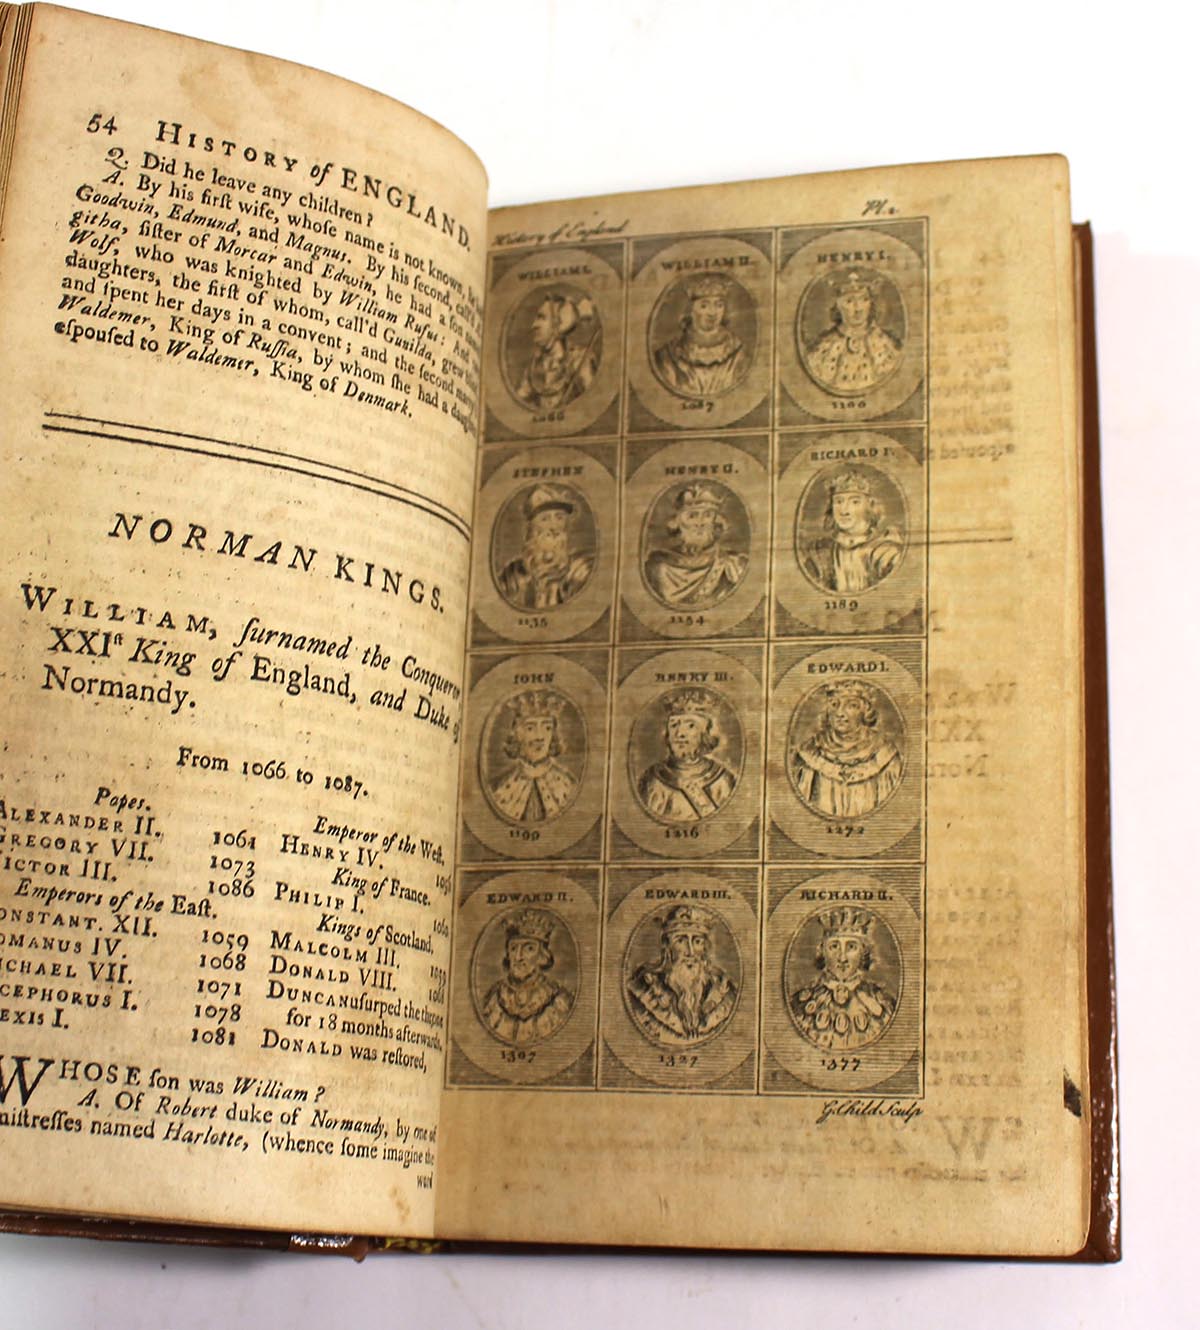 54 HISTORY of ENGLAND.
Q. Did he leave any children?
A. By his firſt wife, whoſe name is not known, he
Goodwin, Edmund, and Magnus. By his ſecond, call'd
githa, ſiſter of Morcar and Edwin, he had a ſon
Wolf, who was knighted by William Rufus: And
daughters, the firſt of whom, call'd Gunilda, grew
and ſpent her days in a convent; and the ſecond
Waldemer, King of Ruſſia, by whom ſhe had a daughter
eſpouſed to Waldemer, King of Denmark.
NORMAN KINGS.
WILLIAM, ſurnamed the Conqueror
XXIſt King of England, and Duke of
Normandy.
From 1066 to 1087.
Popes.
ALEXANDER II. 1061
GREGORY VII. 1073
VICTOR III. 1086
Emperors of the Eaſt.
CONSTANT. XII. 1059
ROMANUS IV. 1068
MICHAEL VII. 1071
NICEPHORUS I. 1078
ALEXIS I. 1081
Emperor of the Weſt.
HENRY IV. 1056
King of France.
PHILIP I. 1060
Kings of Scotland.
MALCOLM III. 1059
DONALD VIII. 1068
DUNCAN uſurped the throne
for 18 months afterwards,
DONALD was reſtored,
WHOSE ſon was William?
A. Of Robert duke of Normandy, by one of
miſtreſſes named Harlotte, (whence ſome imagine the
word
History of England Pl. 2.
WILLIAM I. WILLIAM II. HENRY I.
1066 1087 1100
STEPHEN HENRY II. RICHARD I.
1135 1154 1189
JOHN HENRY III. EDWARD I.
1199 1216 1272
EDWARD II. EDWARD III. RICHARD II.
1307 1327 1377
G. Child Sculp